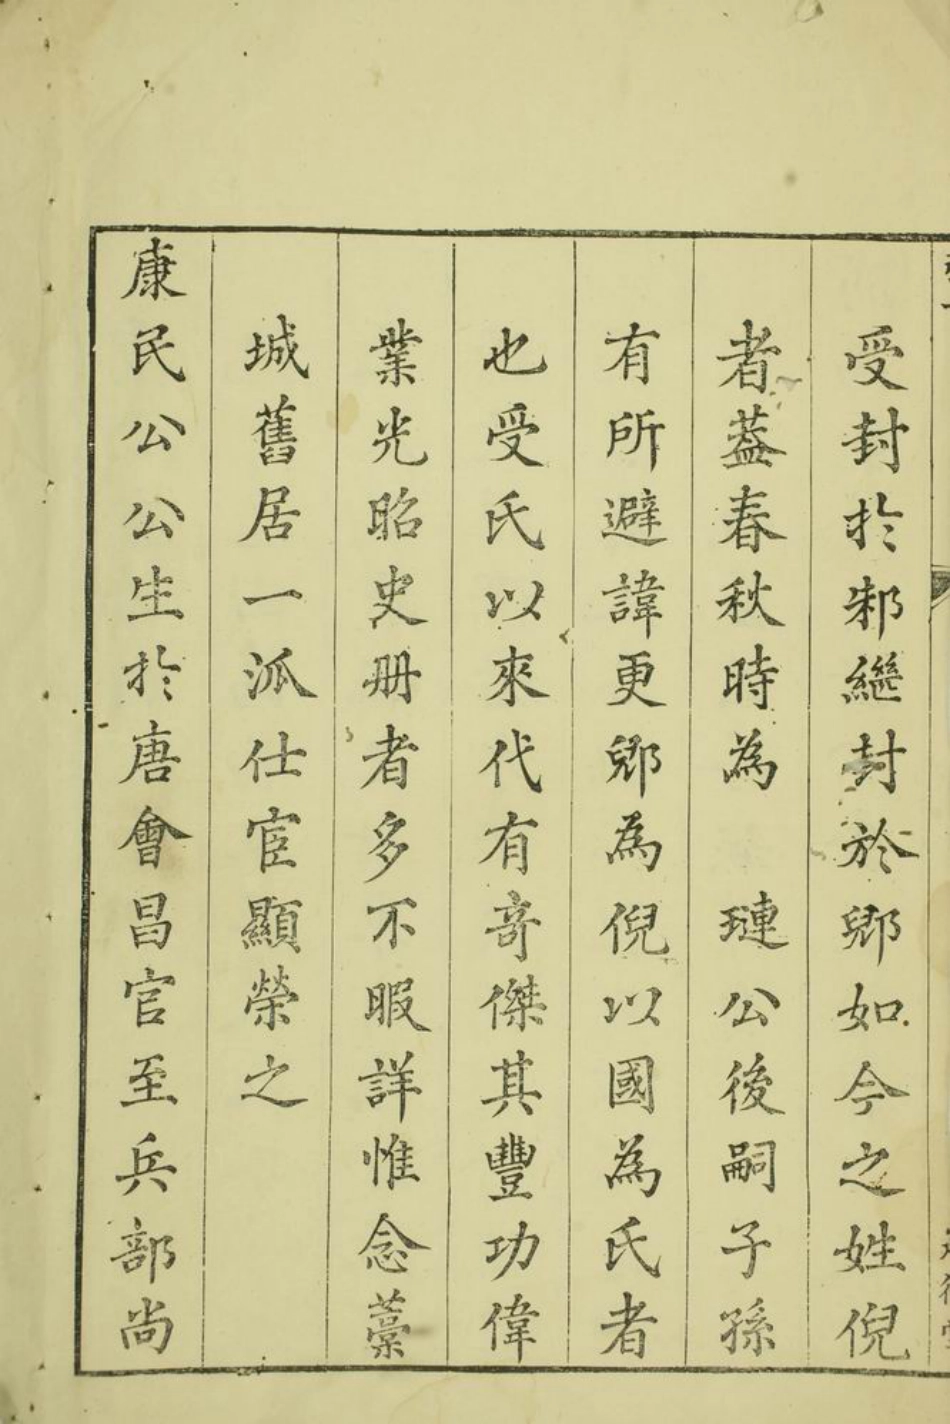 受封於邾繼封於郳如今之姓倪
者葢春秋時為　璉公後嗣子孫
有所避諱更郳為倪以國為氏者
也受氏以來代有竒傑其豐功偉
業光昭史册者多不暇詳惟念藁
城舊居一派仕宦顯榮之
康民公公生於唐會昌官至兵部尚